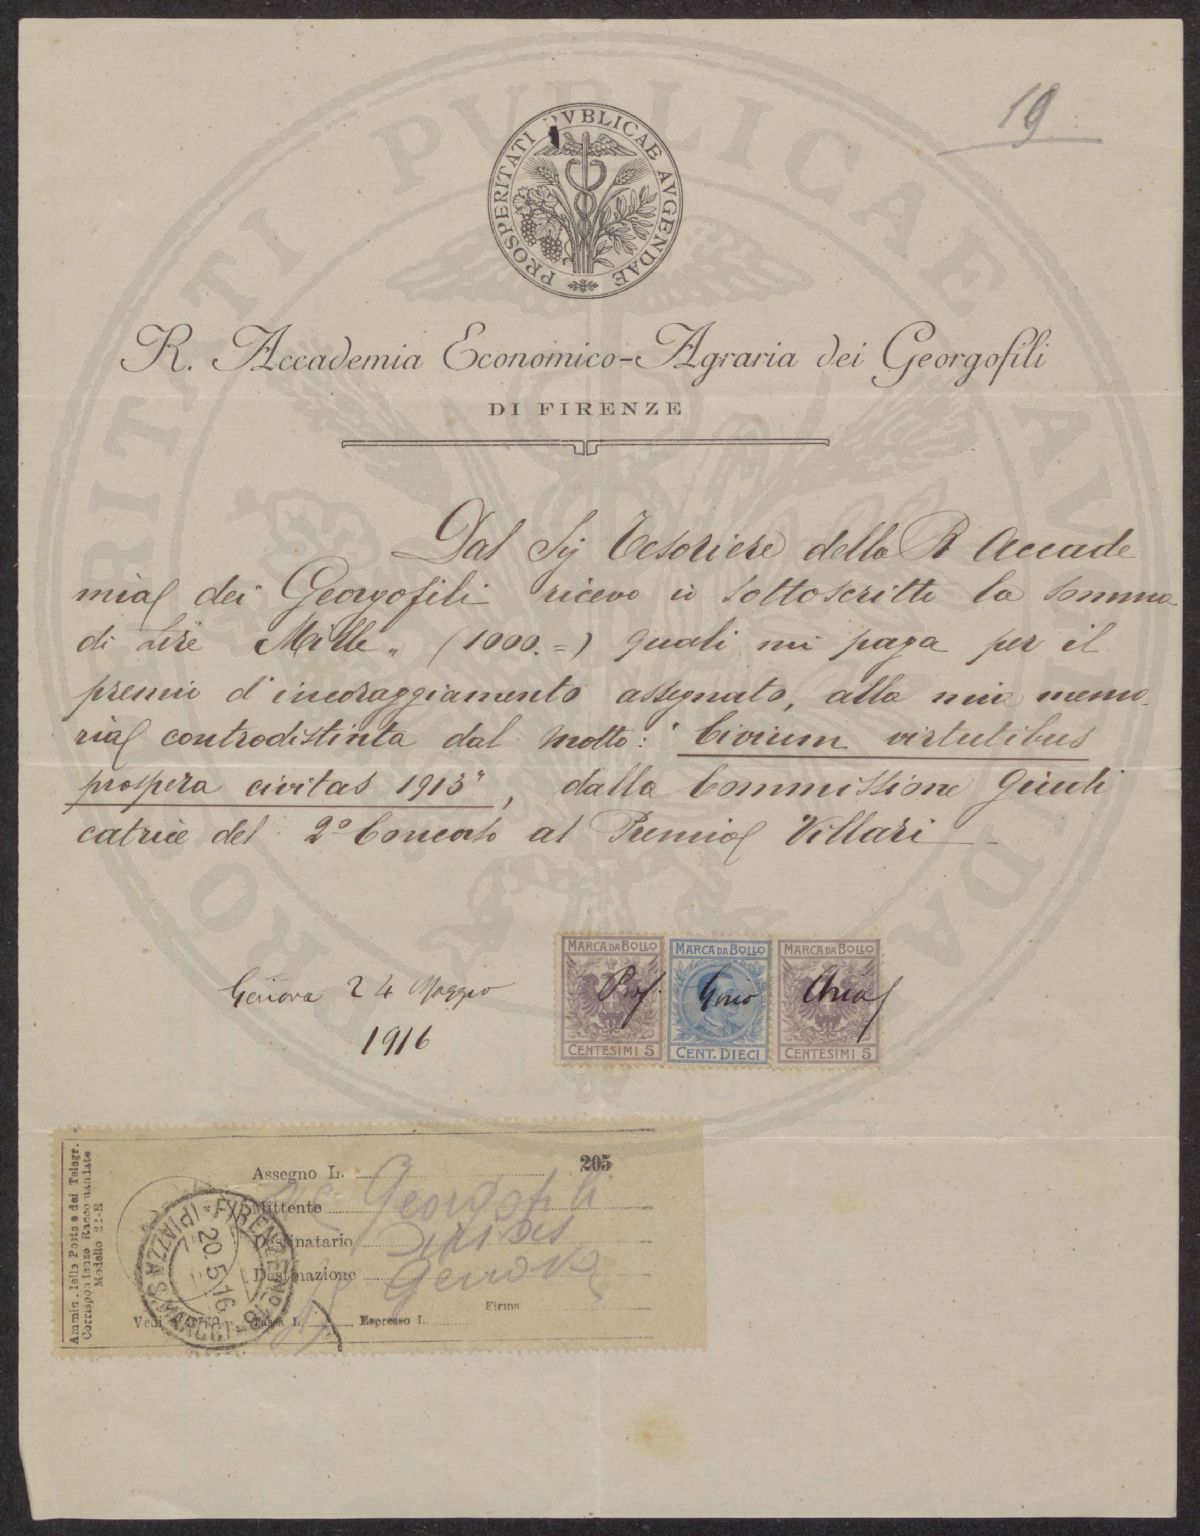 19
PROSPERITATI PVBLICAE AVGENDAE
R. Accademia Economico-Agraria dei Georgofili
DI FIRENZE
Dal Sig Tesoriere della R Accade
mia dei Georgofili ricevo io sottoscritto la somma
di Lire Mille „ (1000.=) quali mi paga per il
premio d'incoraggiamento assegnato, alla mia memo-
ria controdistinta dal motto: "Civium virtutibus
prospera civitas 1913", dalla Commissione giudi
catrice del 2º Concorso al Premio Villari
Genova 24 Maggio
1916
MARCA DA BOLLO MARCA DA BOLLO MARCA DA BOLLO
Prof. Gino Arias
CENTESIMI 5 CENT. DIECI CENTESIMI 5
Ammin. delle Poste e dei Telegr.
Corrispondenze Raccomandate
Modello 22-E
Assegno L. 205
Mittente Georgofili
Destinatario Arias
Destinazione Genova
Firma
Tassa L. Espresso L.
FIRENZE Nº 18 (PIAZZA S. MARCO)
20.5.16